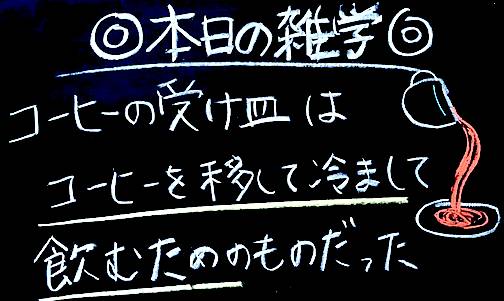 ◎本日の雑学◎
コーヒーの受け皿は
コーヒーを移して冷まして
飲むためのものだった